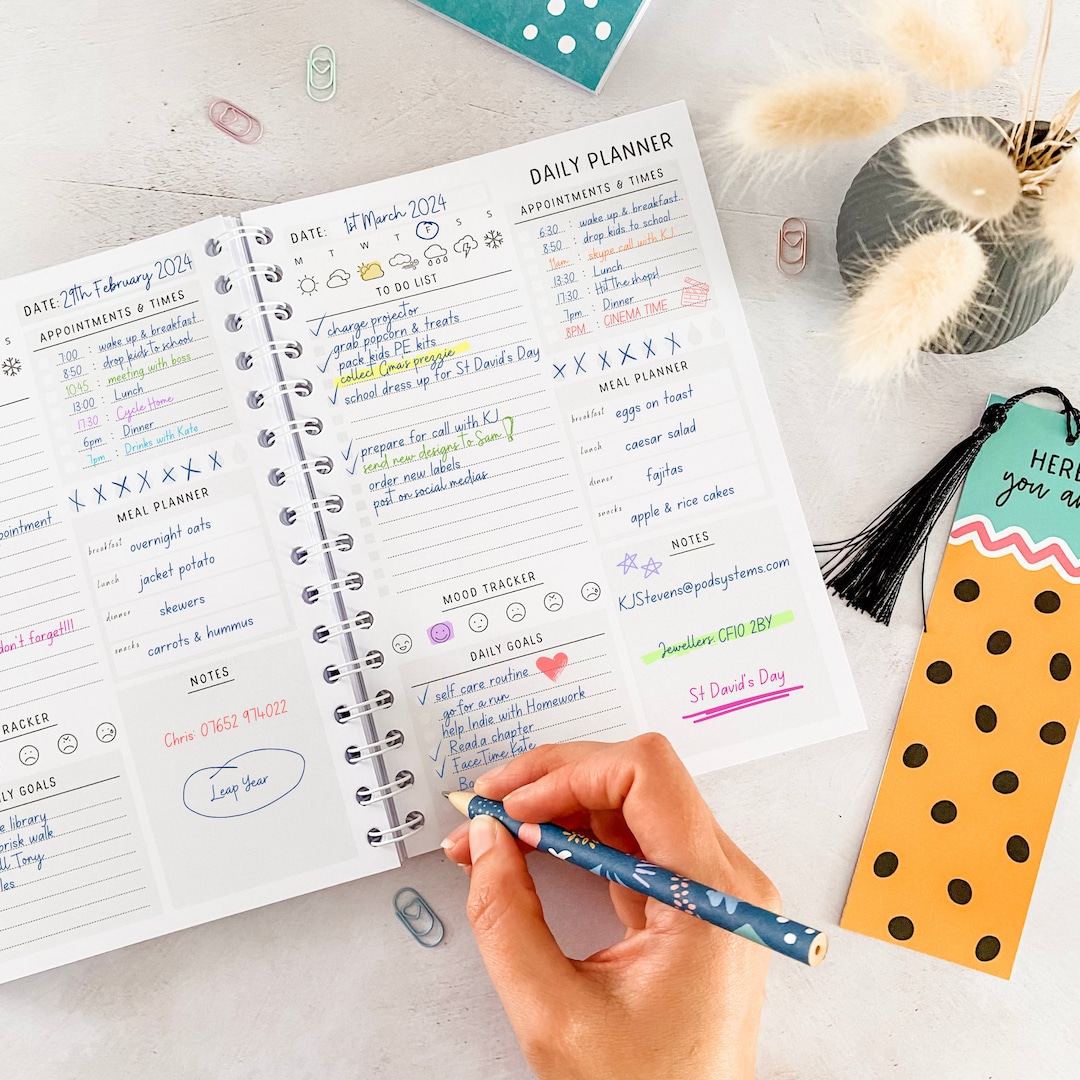 S
DATE: 29th February 2024
APPOINTMENTS & TIMES
7:00 : wake up & breakfast
8:50 : drop kids to school
10:45 : meeting with boss
13:00 : Lunch
17:30 : Cycle Home
6pm : Dinner
7pm : Drinks with Kate
X X X X X X X
MEAL PLANNER
breakfast overnight oats
lunch jacket potato
dinner skewers
snacks carrots & hummus
NOTES
Chris: 07652 974022
Leap Year
don't forget!!!
GOALS
library
brisk walk
Tony
DATE: 1st March 2024
M T W T F S S
TO DO LIST
charge projector
grab popcorn & treats
pack kids PE kits
collect Gma's prezzie
school dress up for St David's Day
prepare for call with KJ
send new designs to Sam!
order new labels
post on social medias
MOOD TRACKER
DAILY GOALS
self care routine
go for a run
help Indie with Homework
Read a chapter
Face Time Kate
DAILY PLANNER
APPOINTMENTS & TIMES
6:30 : wake up & breakfast
8:50 : drop kids to school
11am : skype call with KJ
13:30 : Lunch
17:30 : Hit the shops!
7pm : Dinner
8PM : CINEMA TIME
X X X X X X
MEAL PLANNER
breakfast eggs on toast
lunch caesar salad
dinner fajitas
snacks apple & rice cakes
NOTES
KJStevens@podsystems.com
Jewellers CF10 2BY
St David's Day
HERE
you